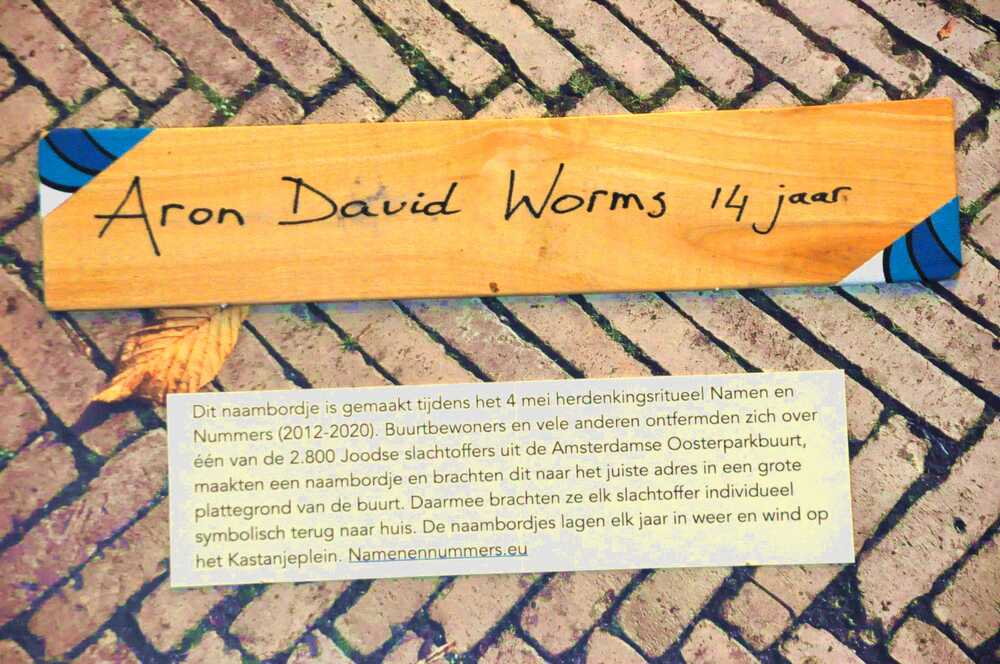 Aron David Worms 14 jaar
Dit naambordje is gemaakt tijdens het 4 mei herdenkingsritueel Namen en
Nummers (2012-2020). Buurtbewoners en vele anderen ontfermden zich over
één van de 2.800 Joodse slachtoffers uit de Amsterdamse Oosterparkbuurt,
maakten een naambordje en brachten dit naar het juiste adres in een grote
plattegrond van de buurt. Daarmee brachten ze elk slachtoffer individueel
symbolisch terug naar huis. De naambordjes lagen elk jaar in weer en wind op
het Kastanjeplein. Namenennummers.eu